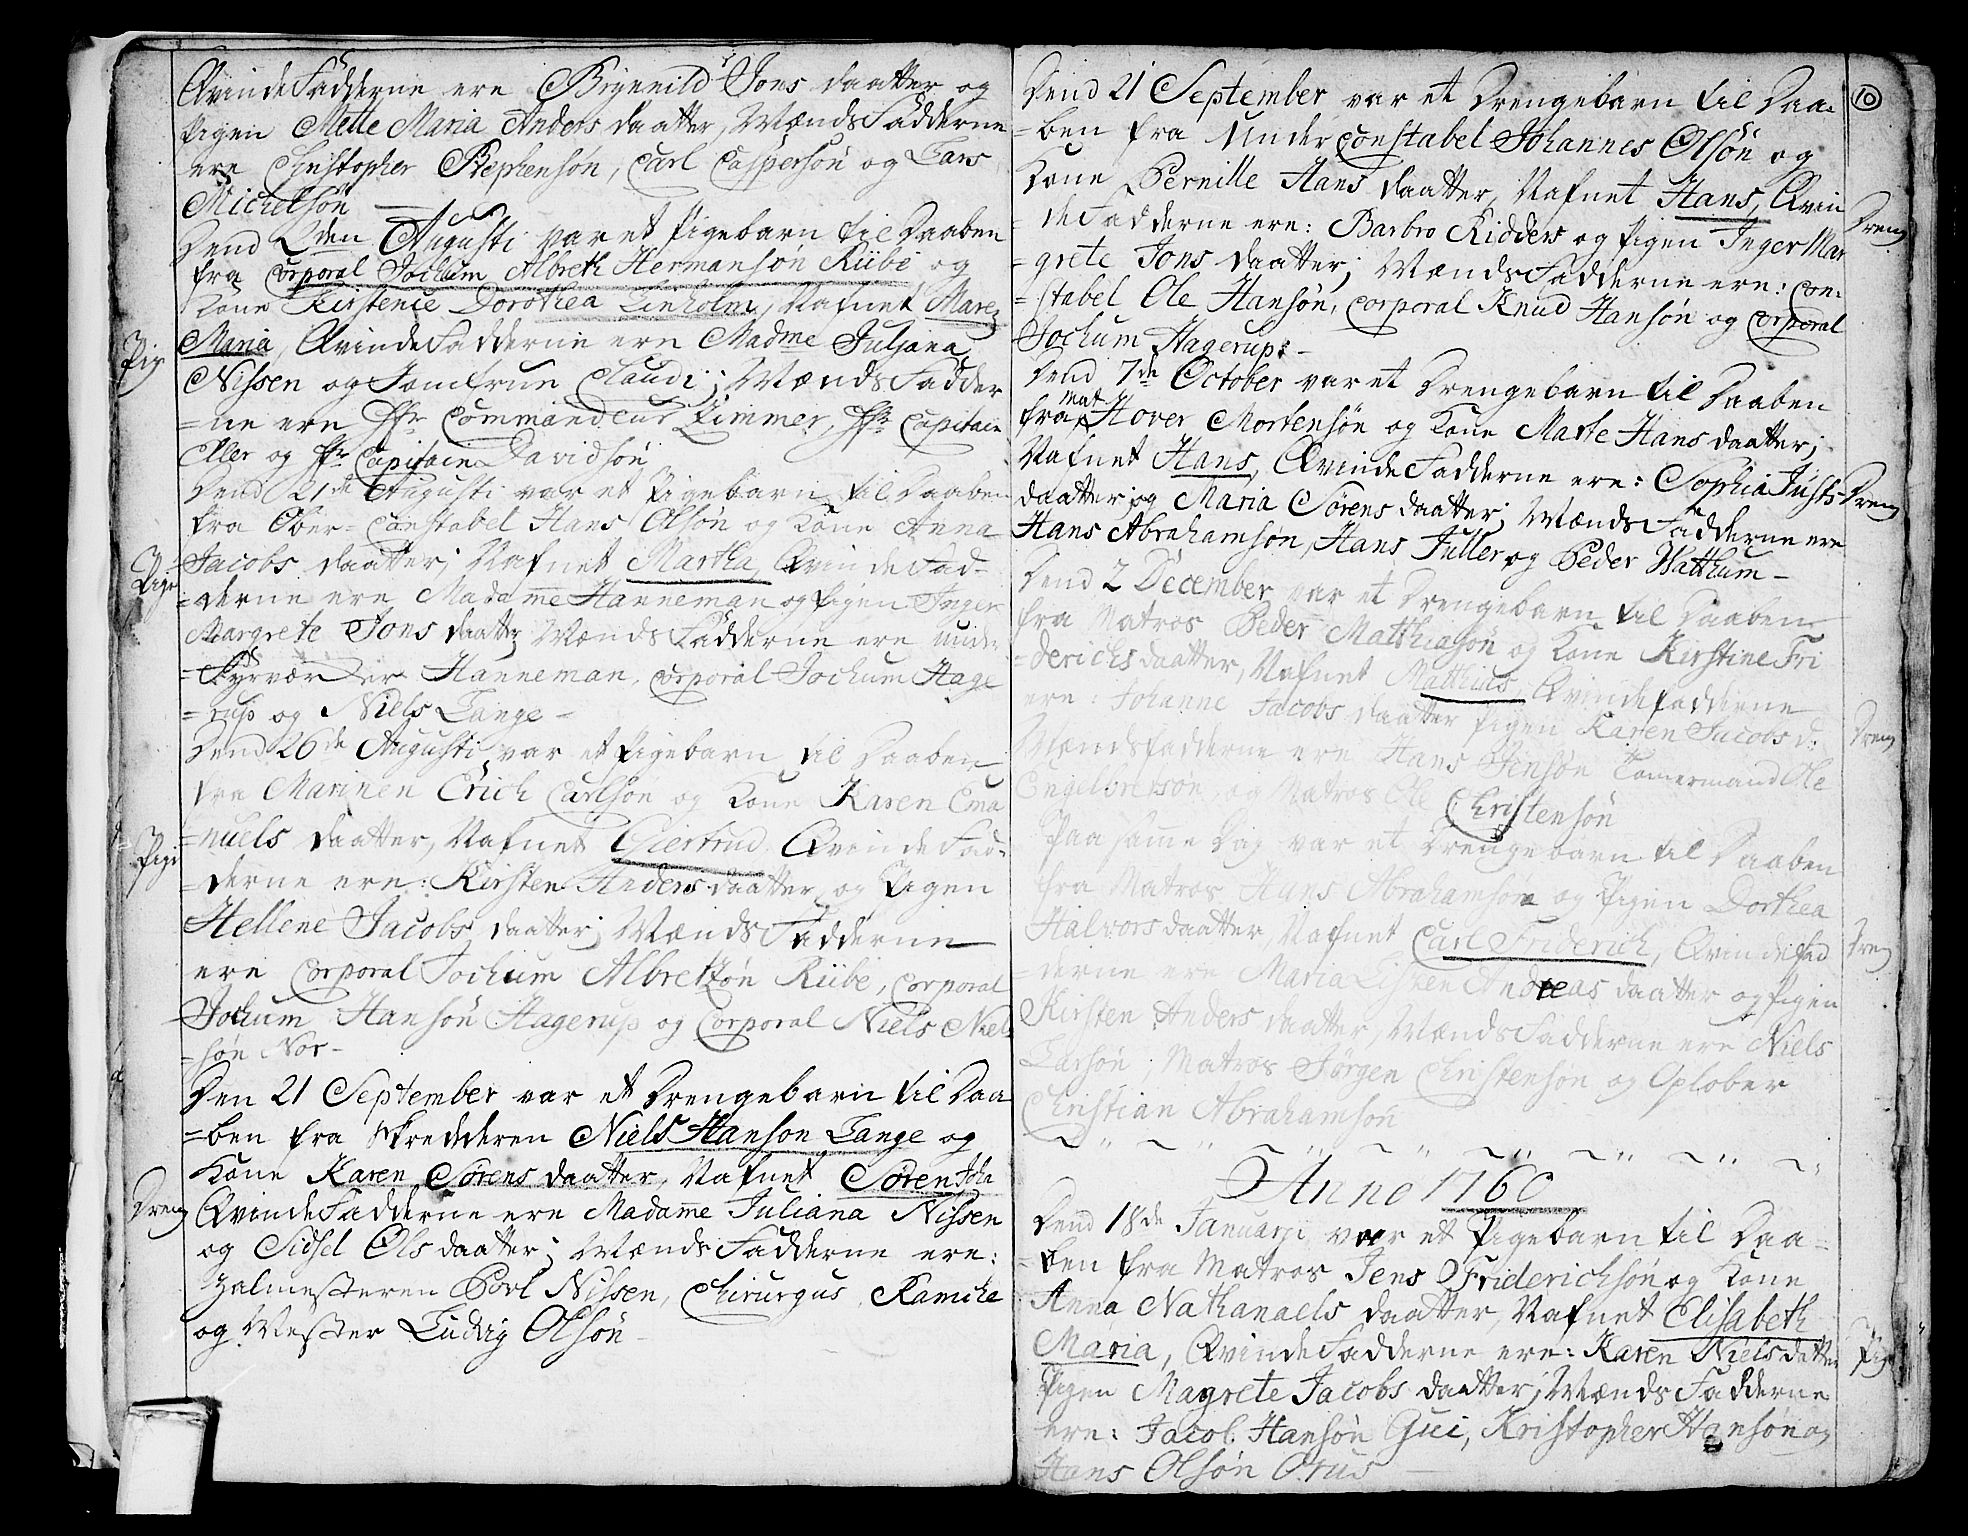 Qvinde Fadderne ere Brynnild Jons daatter og
Pigen Mette Maria Anders daatter, Mænds Fadderne
ere Christopher Stephensøn, Carl Caspersøn og Lars
Michelsøn
Dend 2den Augusti var et Pigebarn til Daaben
fra Corporal Jochum Albreth Hermansøn Riibe og
Kone Kirstence Dorothea Linholm, Nafnet Maren
Maria, Qvinde Fadderne ere Madme Juljana
Pig
Nissen og Jomfrue Claudi; Mænds Fadder
=ne ere Hr Commandeur Zimmer, Hr Capitain
Eller og Hr Capitain Davidsøn
Dend 21de Augusti var et Pigebarn til Daaben
fra Ober=Constabel Hans Olsøn og Kone Anna
Jacobs daatter; Nafnet Martha, Qvinde Fad=
Pige
=derne ere Madame Hanneman og Pigen Inger
Margrete Jons daatter Mænds Fadderne ere under
=Fyrværker Hanneman, Corporal Jochum Hage
=rup og Niels Lange
Dend 26de Augusti var et Pigebarn til Daaben
fra Marinen Erich Carlsøn og Kone Karen Ema
=nuels daatter, Nafnet Giertrud Qvinde Fad=
Pige
=derne ere: Kirsten Anders daatter og Pigen
Hellene Jacobs daatter; Mænds Fadderne
ere Corporal Jochum Albretzøn Riibe, Corporal
Jochum Hansøn Hagerup og Corporal Niels Niel
=søn Nor=
Den 21 September var et Drengebarn til Daa
=ben fra Skredderen Niels Hanson Lange og
Kone Karen Sørens daatter, Nafnet Søren Joha
Dreng
Qvinde Fadderne ere Madame Juliana Nissen
og Sidsel Ols daatter; Mænds Fadderne ere:
Zalmesteren Povl Nissen, Chirurgus Ramche
og Mester Ludvig Olsøn
10
Dend 21 September var et Drengebarn til Daa=
=ben fra Under Constabel Johannes Olsøn og
Kone Pernille Hans daatter, Nafnet Hans, Qvin
Dreng
=de Fadderne ere: Barbro Ridders og Pigen Inger Mar
=grete Jons daatter; Mænds Fadderne ere: Con=
=stabel Ole Hansøn, Corporal Knud Hansøn og Corporal
Jochum Hagerup
Dend 7de October var et Drengebarn til Daaben
fra Mat Hover Mortensøn og Kone Marte Hans daatter;
Nafnet Hans, Qvinde Fadderne ere: Sophia Justs
Dreng
daatter og Maria Sørens daatter; Mænds Fadderne ere
Hans Abrahamsøn, Hans Juller og Peder Watthum
Dend 2 December var et Drengebarn til Daaben
fra Matros Peder Matthiasøn og Kone Kirstine Fri
=derichs daatter, Nafnet Matthias Qvindefadderne
ere: Johanne Jacobs daatter Pigen Karen Jacobs d:
Dreng
Mændsfadderne ere Hans Jensøn Tømermand Ole
Engelbretsøn, og Matros Ole Christensøn
Paa samme Dag var et Drengebarn til Daaben
fra Matros Hans Abrahamsøn og Pigen Dorthea
Halvors daatter Nafnet Carl Friderich, Qvindefad
Dreng
=derne ere Maria Lisken Andreas daatter og Pigen
Kirsten Anders daatter, Mænds Fadderne ere Niels
Larsøn, Matros Jørgen Christensøn og Oplober
Christian Abrahamsøn
Anno 1760
Dend 18de Januarji var et Pigebarn til Daa=
=ben fra Matros Jens Friderichsøn og Kone
Anna Nathanaels daatter, Nafnet Elisabeth
Maria, Qvinde Fadderne ere: Karen Niels datter
Pige
Pigen Magrete Jacobs daatter; Mænds Fadderne
ere: Jacob Hansøn Gui, Kristopher Hansøn og
Hans Olsøn